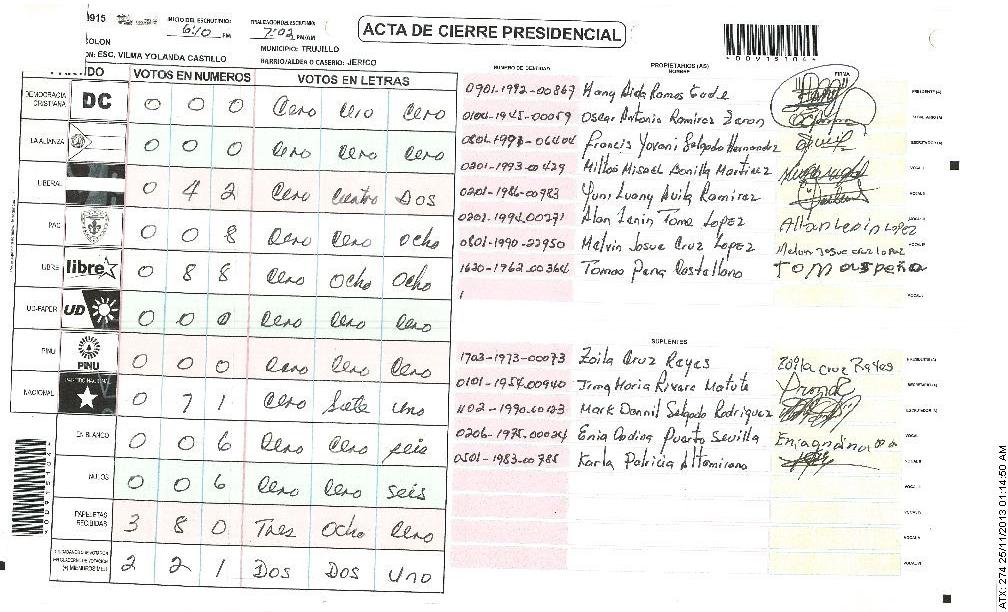 9915 INICIO DEL ESCRUTINIO: 6:10 PM FINALIZACION DEL ESCRUTINIO: 7:02 PM/AM
ACTA DE CIERRE PRESIDENCIAL
COLON MUNICIPIO: TRUJILLO
ON: ESC. VILMA YOLANDA CASTILLO BARRIO/ALDEA O CASERIO: JERICO
*009915104*
DO VOTOS EN NUMEROS VOTOS EN LETRAS
DEMOCRACIA CRISTIANA DC 0 0 0 Cero Cero Cero
LA ALIANZA 0 0 0 Cero Cero Cero
LIBERAL 0 4 2 Cero Cuatro Dos
PAC 0 0 8 Cero Cero Ocho
LIBRE libre 0 8 8 Cero Ocho Ocho
UD-FAPER UD 0 0 0 Cero Cero Cero
PINU PINU 0 0 0 Cero Cero Cero
NACIONAL PARTIDO NACIONAL 0 7 1 Cero Siete uno
EN BLANCO 0 0 6 Cero Cero seis
NULOS 0 0 6 Cero Cero seis
PAPELETAS RECIBIDAS 3 8 0 Tres Ocho Cero
2 2 1 Dos Dos Uno
NUMERO DE IDENTIDAD PROPIETARIOS (AS) NOMBRE FIRMA
0901-1992-00867 Hany Aida Ramos PRESIDENTE (A)
0104-1945-00059 Oscar Antonio Ramirez SECRETARIO (A)
0801-1993-06404 Francis Yovani Salgado Hernandez ESCRUTADOR (A)
0201-1993-00429 Milton Misael Bonilla Martinez VOCAL I
0201-1986-00983 Yuni Luany Avila Ramirez VOCAL II
0201-1994-00271 Alan Lenin Tome Lopez VOCAL III
0801-1990-22950 Melvin Josue Cruz Lopez Melvin Josue cruz Lopez VOCAL IV
1620-1962-00364 Tomas Pena Castellano Tomas peña
SUPLENTES
1703-1973-00073 Zoila Cruz Reyes Zoila Cruz Reyes PRESIDENTE (A)
0101-1954-00940 Maria Rivare Matute SECRETARIO (A)
1102-1990-00123 Mark Dannil Salgado Rodriguez ESCRUTADOR (A)
0206-1975-00024 Enia Codina Puerto Sevilla VOCAL I
0501-1983-00785 Karla Patricia Altamirano VOCAL II
VOCAL III
VOCAL IV
VOCAL V
VOCAL VI
ATX: 274 25/11/2013 01:14:50 AM